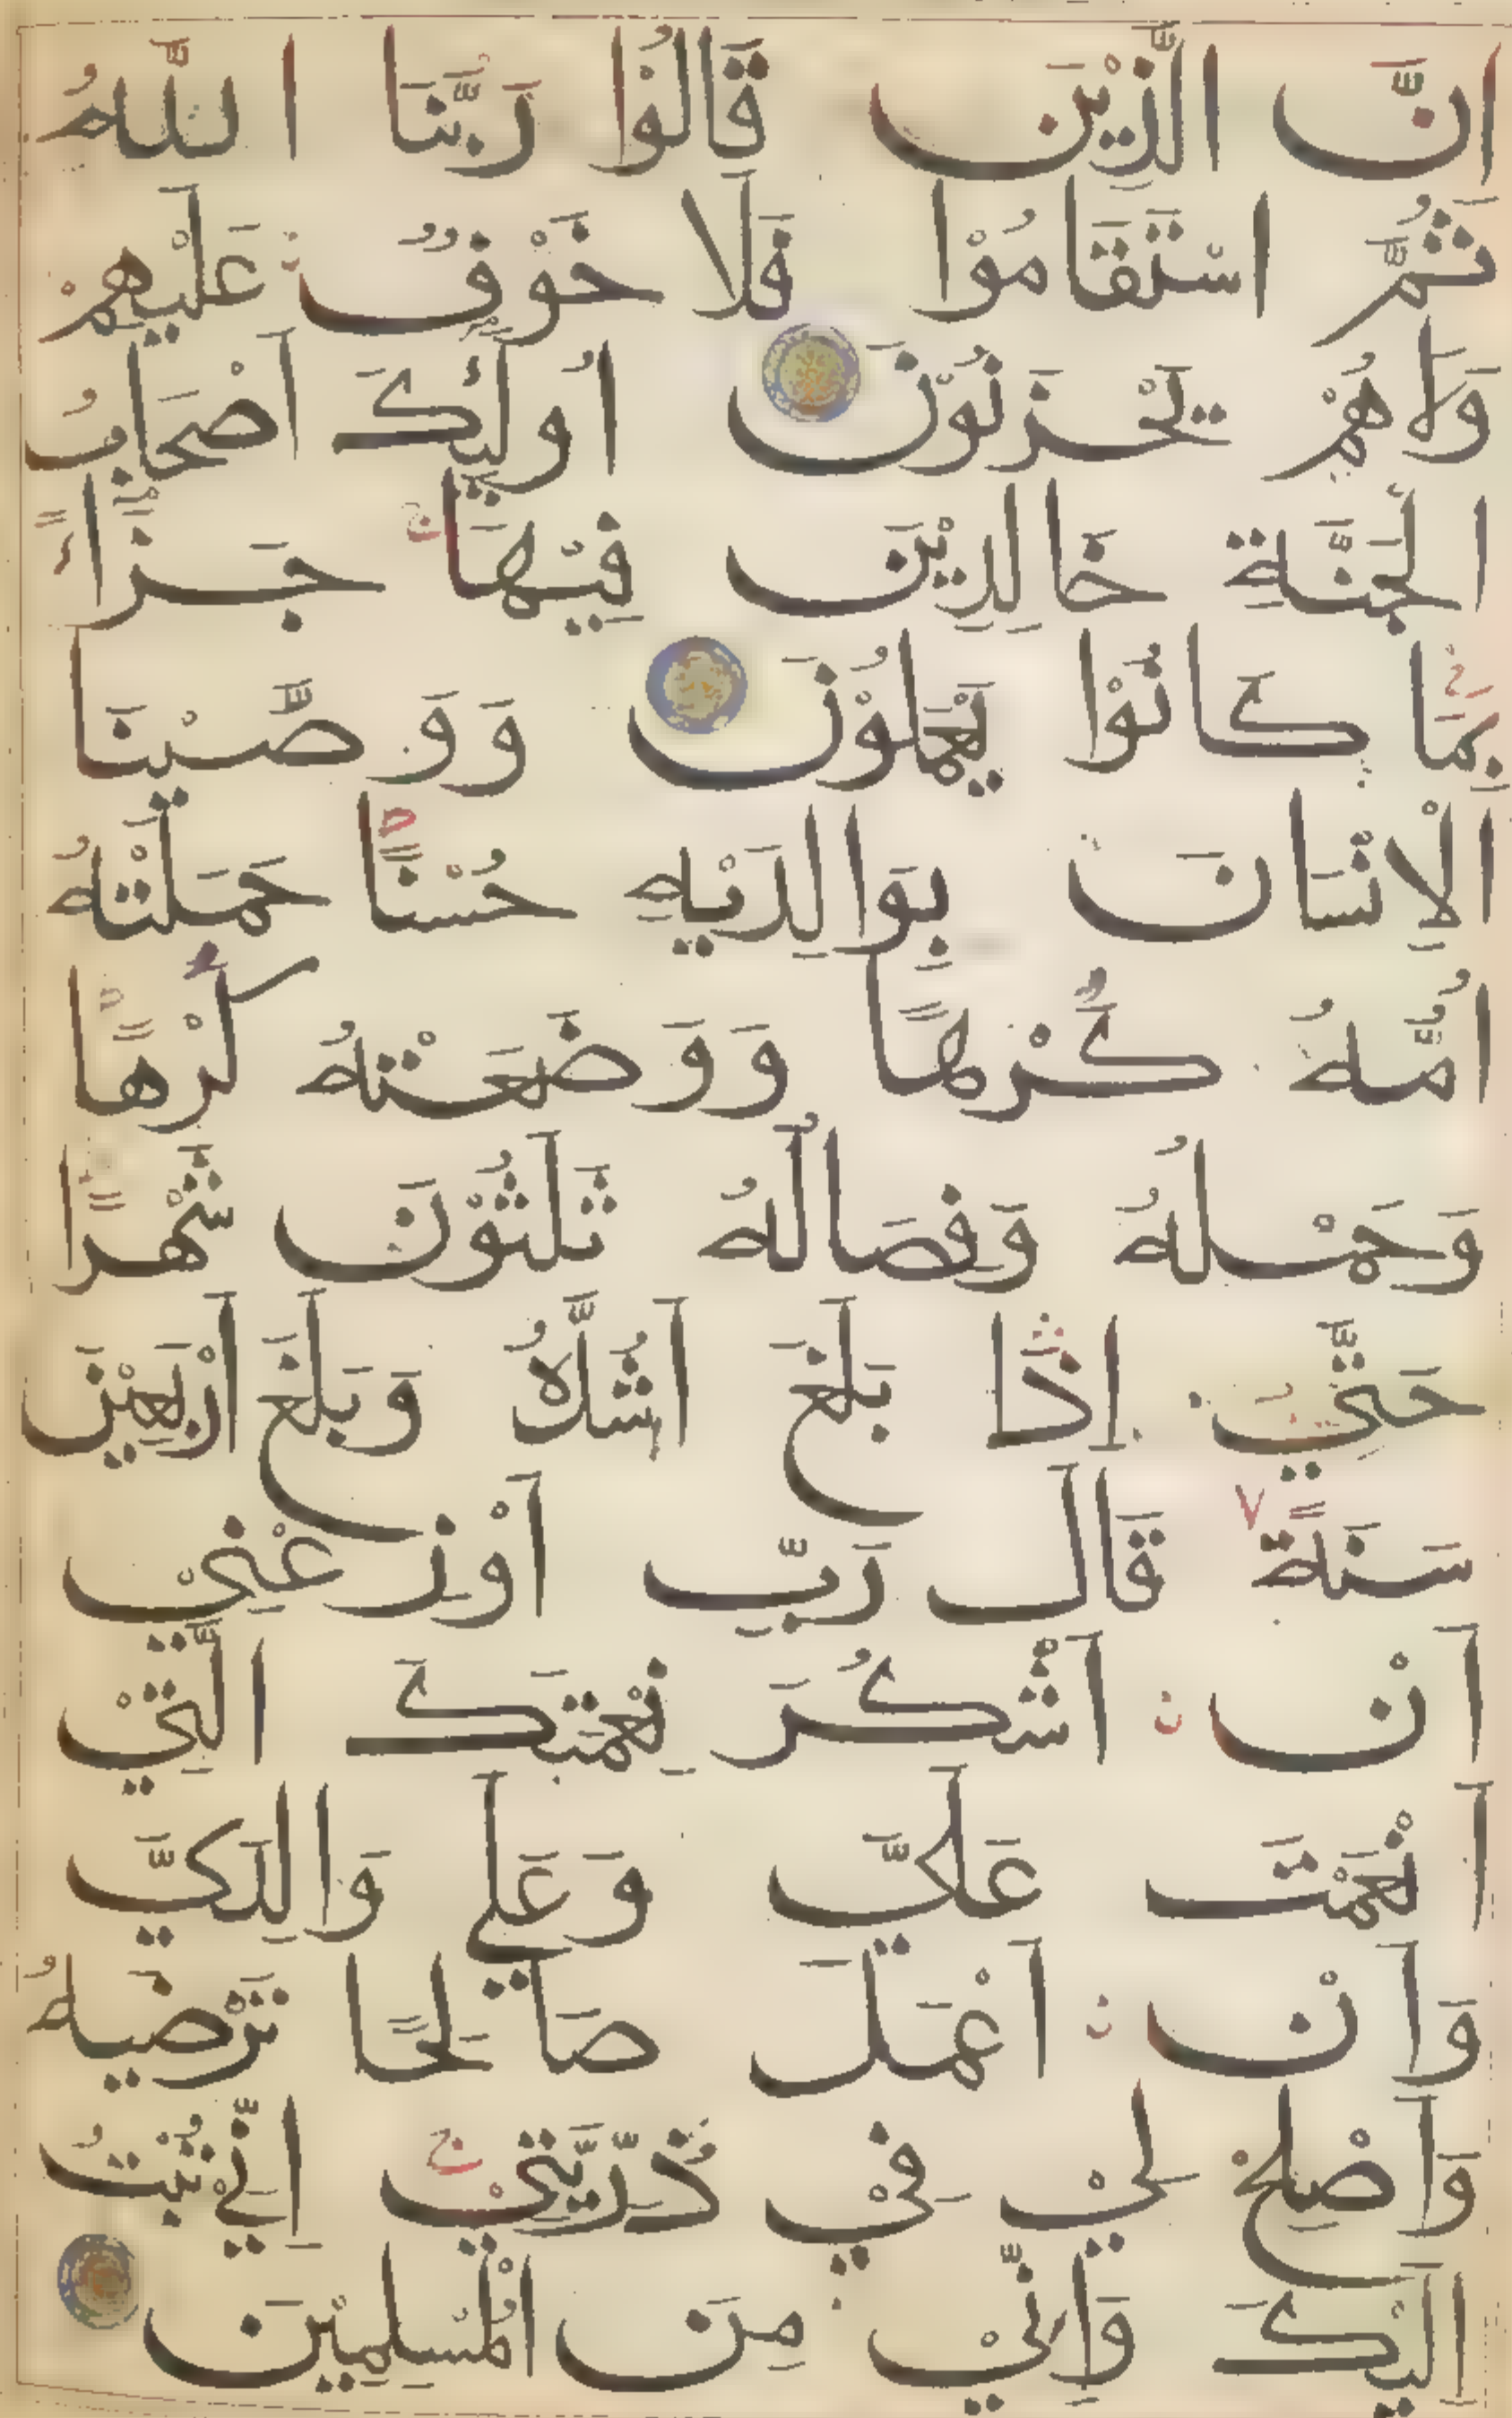 اِنَّ الَّذِيْنَ قَالُوْا رَبُّنَا اللّٰهُ
ثُمَّ اسْتَقَامُوْا فَلَا خَوْفٌ عَلَيْهِمْ
وَلَا هُمْ يَحْزَنُوْنَ اُولٰٓئِكَ اَصْحَابُ
الْجَنَّةِ خَالِدِيْنَ فِيْهَا ج جَزَاءً
بِمَا كَانُوْا يَعْمَلُوْنَ وَوَصَّيْنَا
الْاِنْسَانَ بِوَالِدَيْهِ حُسْنًا حَمَلَتْهُ
اُمُّهُ كُرْهًا وَوَضَعَتْهُ كُرْهًا
وَحَمْلُهُ وَفِصَالُهُ ثَلٰثُوْنَ شَهْرًا
حَتّٰي اِذَا بَلَغَ اَشُدَّهُ وَبَلَغَ اَرْبَعِيْنَ
سَنَةً قَالَ رَبِّ اَوْزِعْنِيْ
اَنْ اَشْكُرَ نِعْمَتَكَ الَّتِيْ
اَنْعَمْتَ عَلَيَّ وَعَلٰي وَالِدَيَّ
وَاَنْ اَعْمَلَ صَالِحًا تَرْضٰيهُ
وَاَصْلِحْ لِيْ فِيْ ذُرِّيَّتِيْ ج اِنِّيْ تُبْتُ
اِلَيْكَ وَاِنِّيْ مِنَ الْمُسْلِمِيْنَ